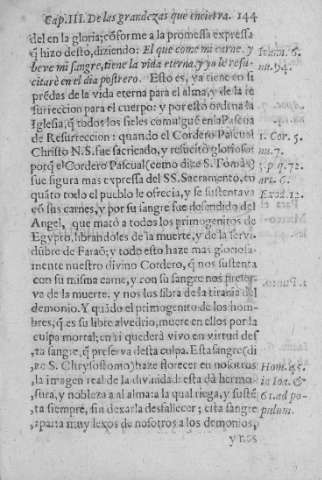 Cap. III. De las grandezas que encierra. 144
del en la gloria; cõforme a la promessa expressa
q̃ hizo desto, diziendo: El que come mi carne, y
beve mi sangre, tiene la vida eterna, y yo le resu-
citarè en el dia postrero. Esto es, ya tiene en si
prẽdas de la vida eterna para el alma, y de la re
surreccion para el cuerpo: y por esto ordena la
Iglesia, q̃ todos los fieles comulguẽ en la Pascua
de Resurreccion: quando el Cordero Pascual
Christo N.S. fue sacrificado, y resucitò glorioso:
porq̃ el Cordero Pascual (como dize S. Tomàs)
fue figura mas expressa del SS. Sacramento, en
quãto todo el pueblo le ofrecia, y se sustentava
cõ sus carnes, y por su sangre fue defendido del
Angel, que matò a todos los primogenitos de
Egypto, librandoles de la muerte, y de la servi-
dũbre de Faraõ; y todo esto haze mas gloriosa-
mente nuestro divino Cordero, q̃ nos sustenta
con su misma carne, y con su sangre nos preser-
va de la muerte, y nos libra de la tirania del
demonio. Y quãdo el primogenito de los hom-
bres, q̃ es su libre alvedrio, muere en ellos por la
culpa mortal; en ti quederà vivo en virtud des-
ta sangre, q̃ preserva desta culpa. Esta sangre (di
ze S. Chrysostomo) haze florecer en nosotros
la imagen real de la divinidad: esta dà hermo-
sura, y nobleza al alma: a la qual riega, y susten
ta siempre, sin dexarla desfallecer; esta sangre
aparta muy lexos de nosotros a los demonios,
y nos
Ioan. 6.
nu. 94.
1. Cor. 5.
nu. 7.
3. p. q. 72.
ar. 6.
Exod. 12.
Hom. 45.
in Ioã. &
61. ad po-
pulum.